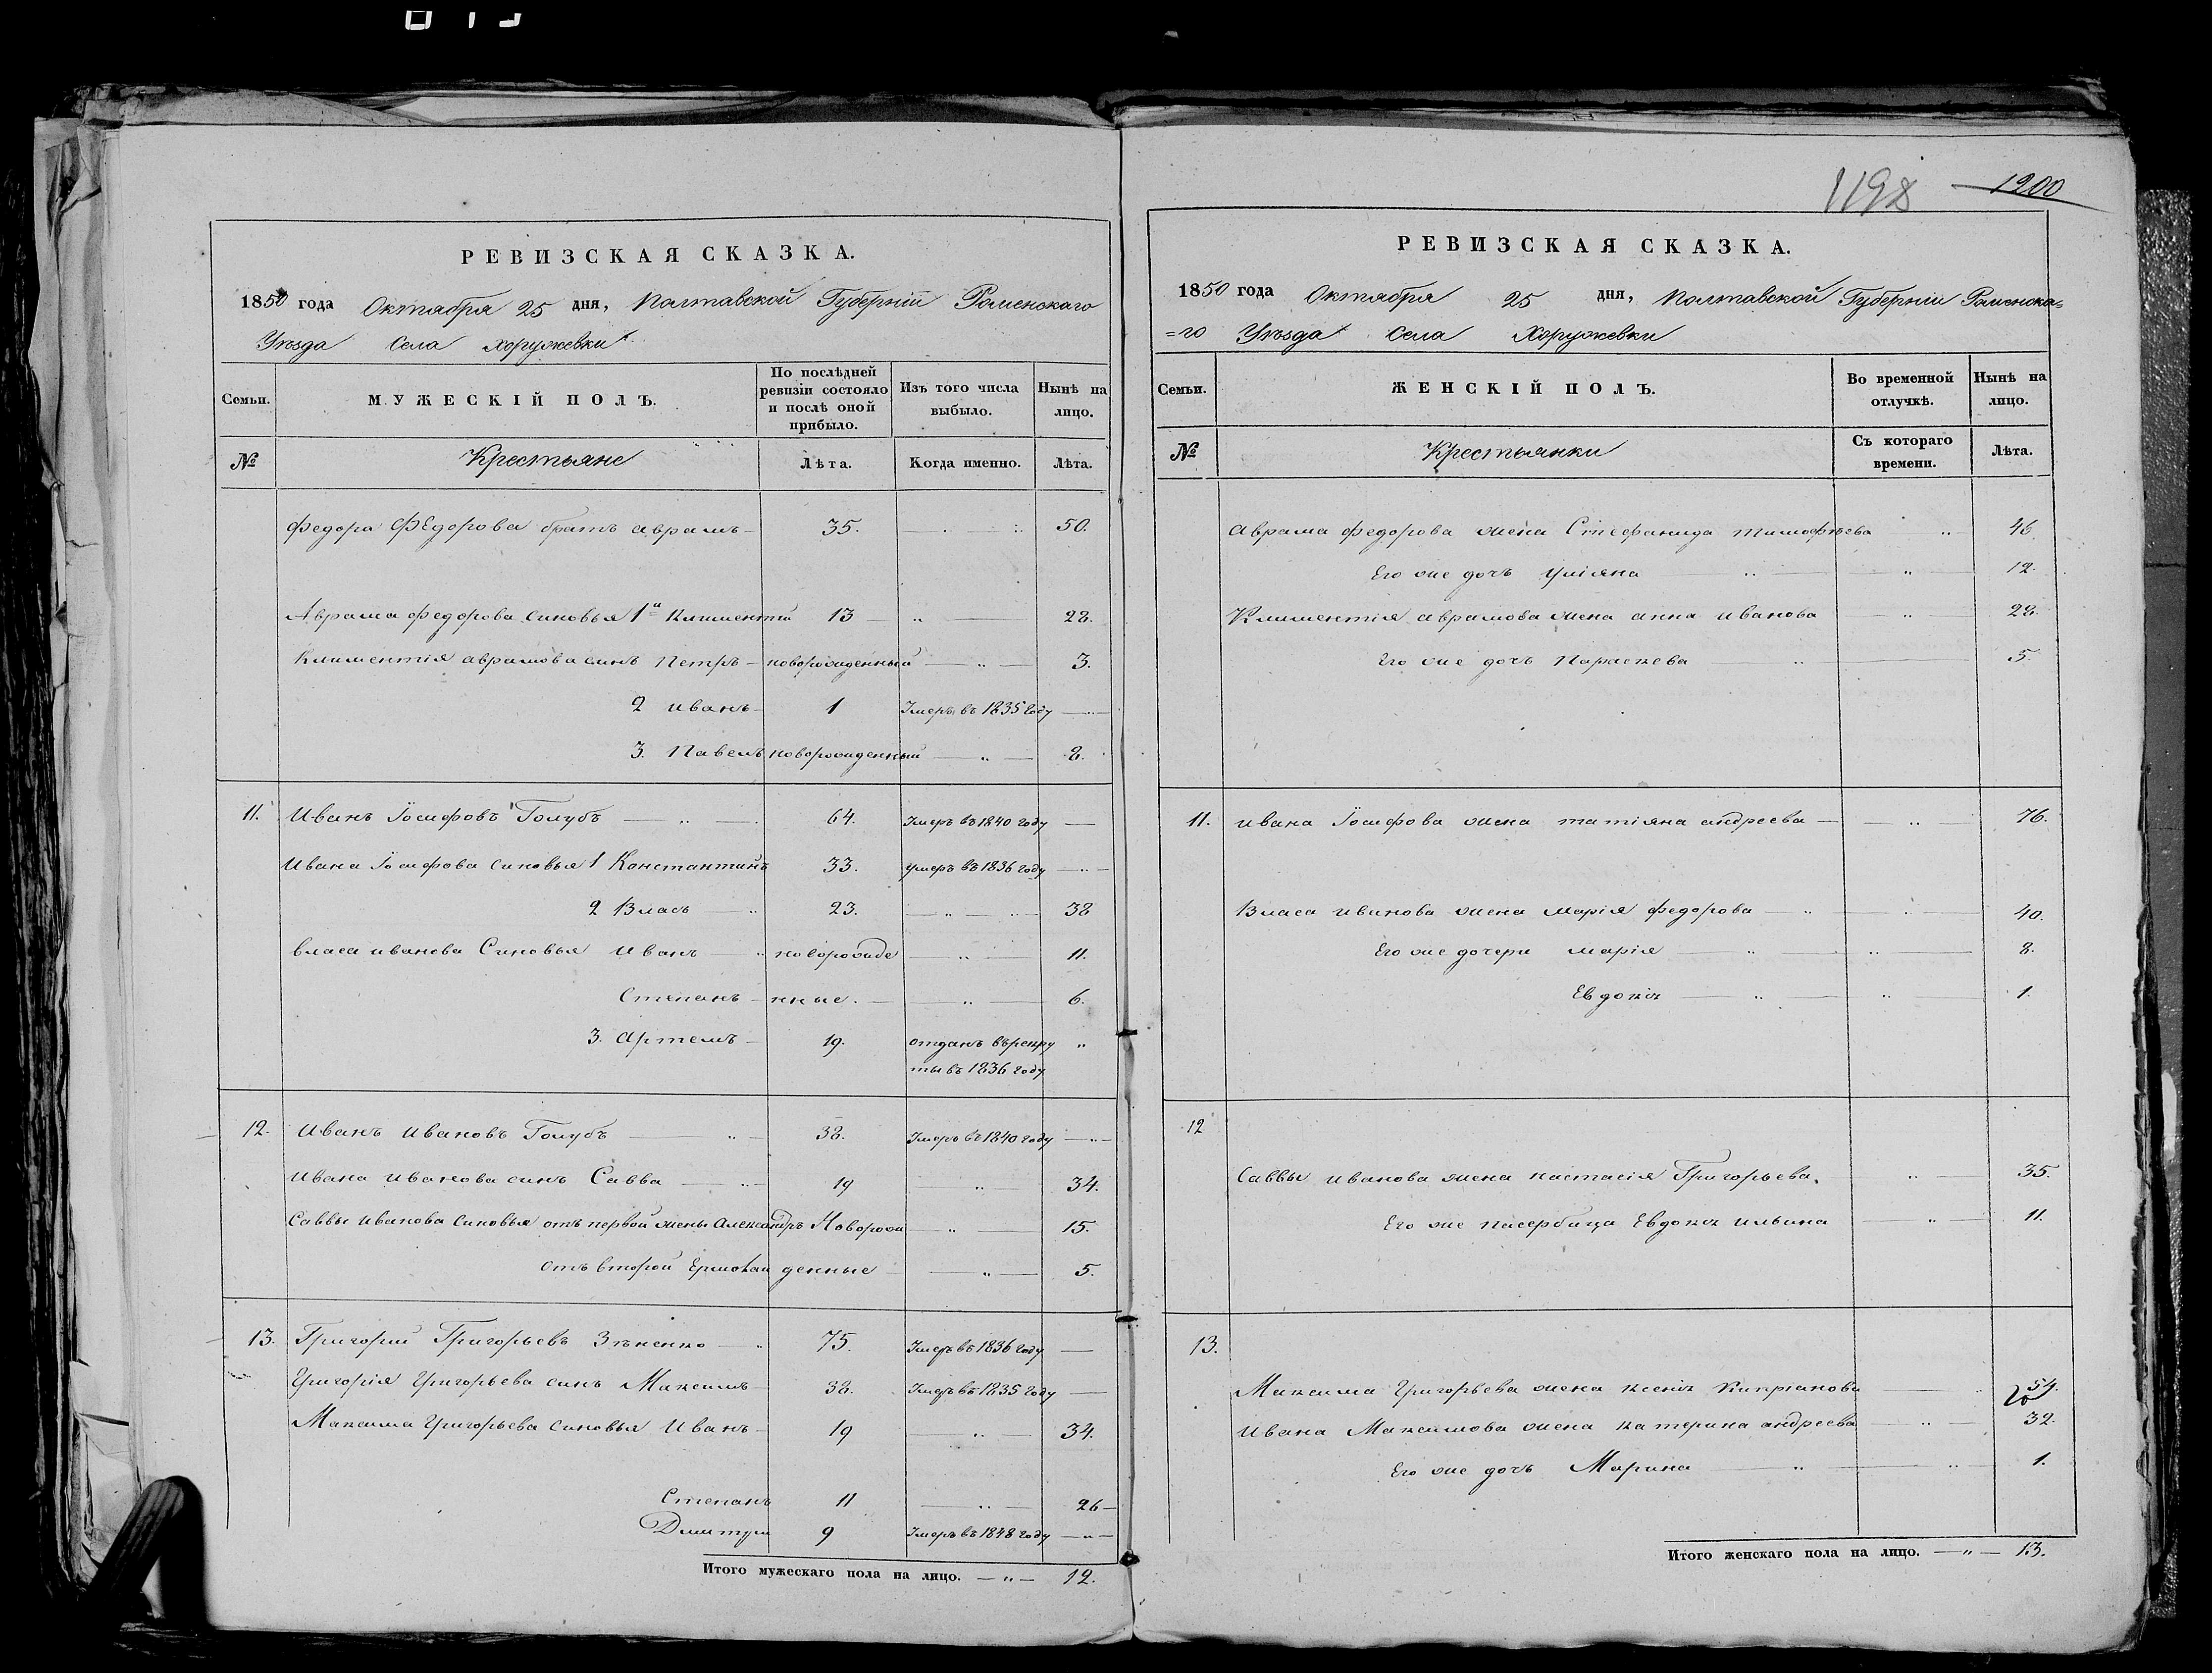 1198 1200
РЕВИЗСКАЯ СКАЗКА.
1850 года Октября 25 дня, Полтавской Губерніи Роменскаго
Уѣзда Села Хоружевки
Семьи. МУЖЕСКІЙ ПОЛЪ. По послѣдней ревизіи состояло и послѣ оной прибыло. Изъ того числа выбыло. Нынѣ на лицо.
№ Крестьяне Лѣта. Когда именно. Лѣта.
Федора Федорова братъ Аврамъ 35. 50.
Аврама Федорова синовья 1й Климентій 13 28.
Климентія Аврамова синъ Петръ новорожденный 3.
2 Иванъ 1 Умеръ въ 1835 году
3. Павелъ новорожденный 8.
11. Иванъ Іосифовъ Голубъ 64. Умеръ въ 1840 году
Ивана Іосифова синовья 1 Константинъ 33. умеръ въ 1836 году
2 Власъ 23. 38
Власа Иванова Синовья Иванъ новорожде 11.
Степанъ нные. 6.
3. Артемъ 19. отданъ въ рекру
ты въ 1836 году
12. Иванъ Ивановъ Голубъ 38. Умеръ въ 1840 году
Ивана Иванова синъ Савва 19 34.
Саввы Иванова синовья отъ первой жены Александръ Новорож 15.
отъ второй Ермолай денные 5.
13. Григорій Григорьевъ Зѣненко 75. Умеръ въ 1836 году
Григорія Григорьева синъ Максимъ 38. Умеръ въ 1835 году
Максима Григорьева синовья Иванъ 19 34.
Степанъ 11 26
Димитрій 9 Умеръ въ 1848 году
Итого мужескаго пола на лицо. 12.
РЕВИЗСКАЯ СКАЗКА.
1850 года Октября 25 дня, Полтавской Губерніи Роменска=
=го Уѣзда Села Хоружевки
Семьи. ЖЕНСКІЙ ПОЛЪ. Во временной отлучкѣ. Нынѣ на лицо.
№ Крестьянки Съ котораго времени. Лѣта.
Аврама Федорова жена Стефанида Тимофѣева 46.
Его же дочъ Уліяна 12.
Климентія Аврамова жена Анна Иванова 28.
Его же дочъ Параскева 5.
11. Ивана Іосифова жена Татіяна Андреева 76.
Власа Иванова жена Марія Федорова 40.
Его же дочери Марія 8.
Евдокія 1.
12
Саввы Иванова жена Настасія Григорьева 35.
Его же пасербица Евдокія Ильина 11.
13.
Максима Григорьева жена Ксенія Кипріанова 54.
Ивана Максимова жена Катерина Андреева 32.
Его же дочъ Марина 1.
Итого женскаго пола на лицо. 13.